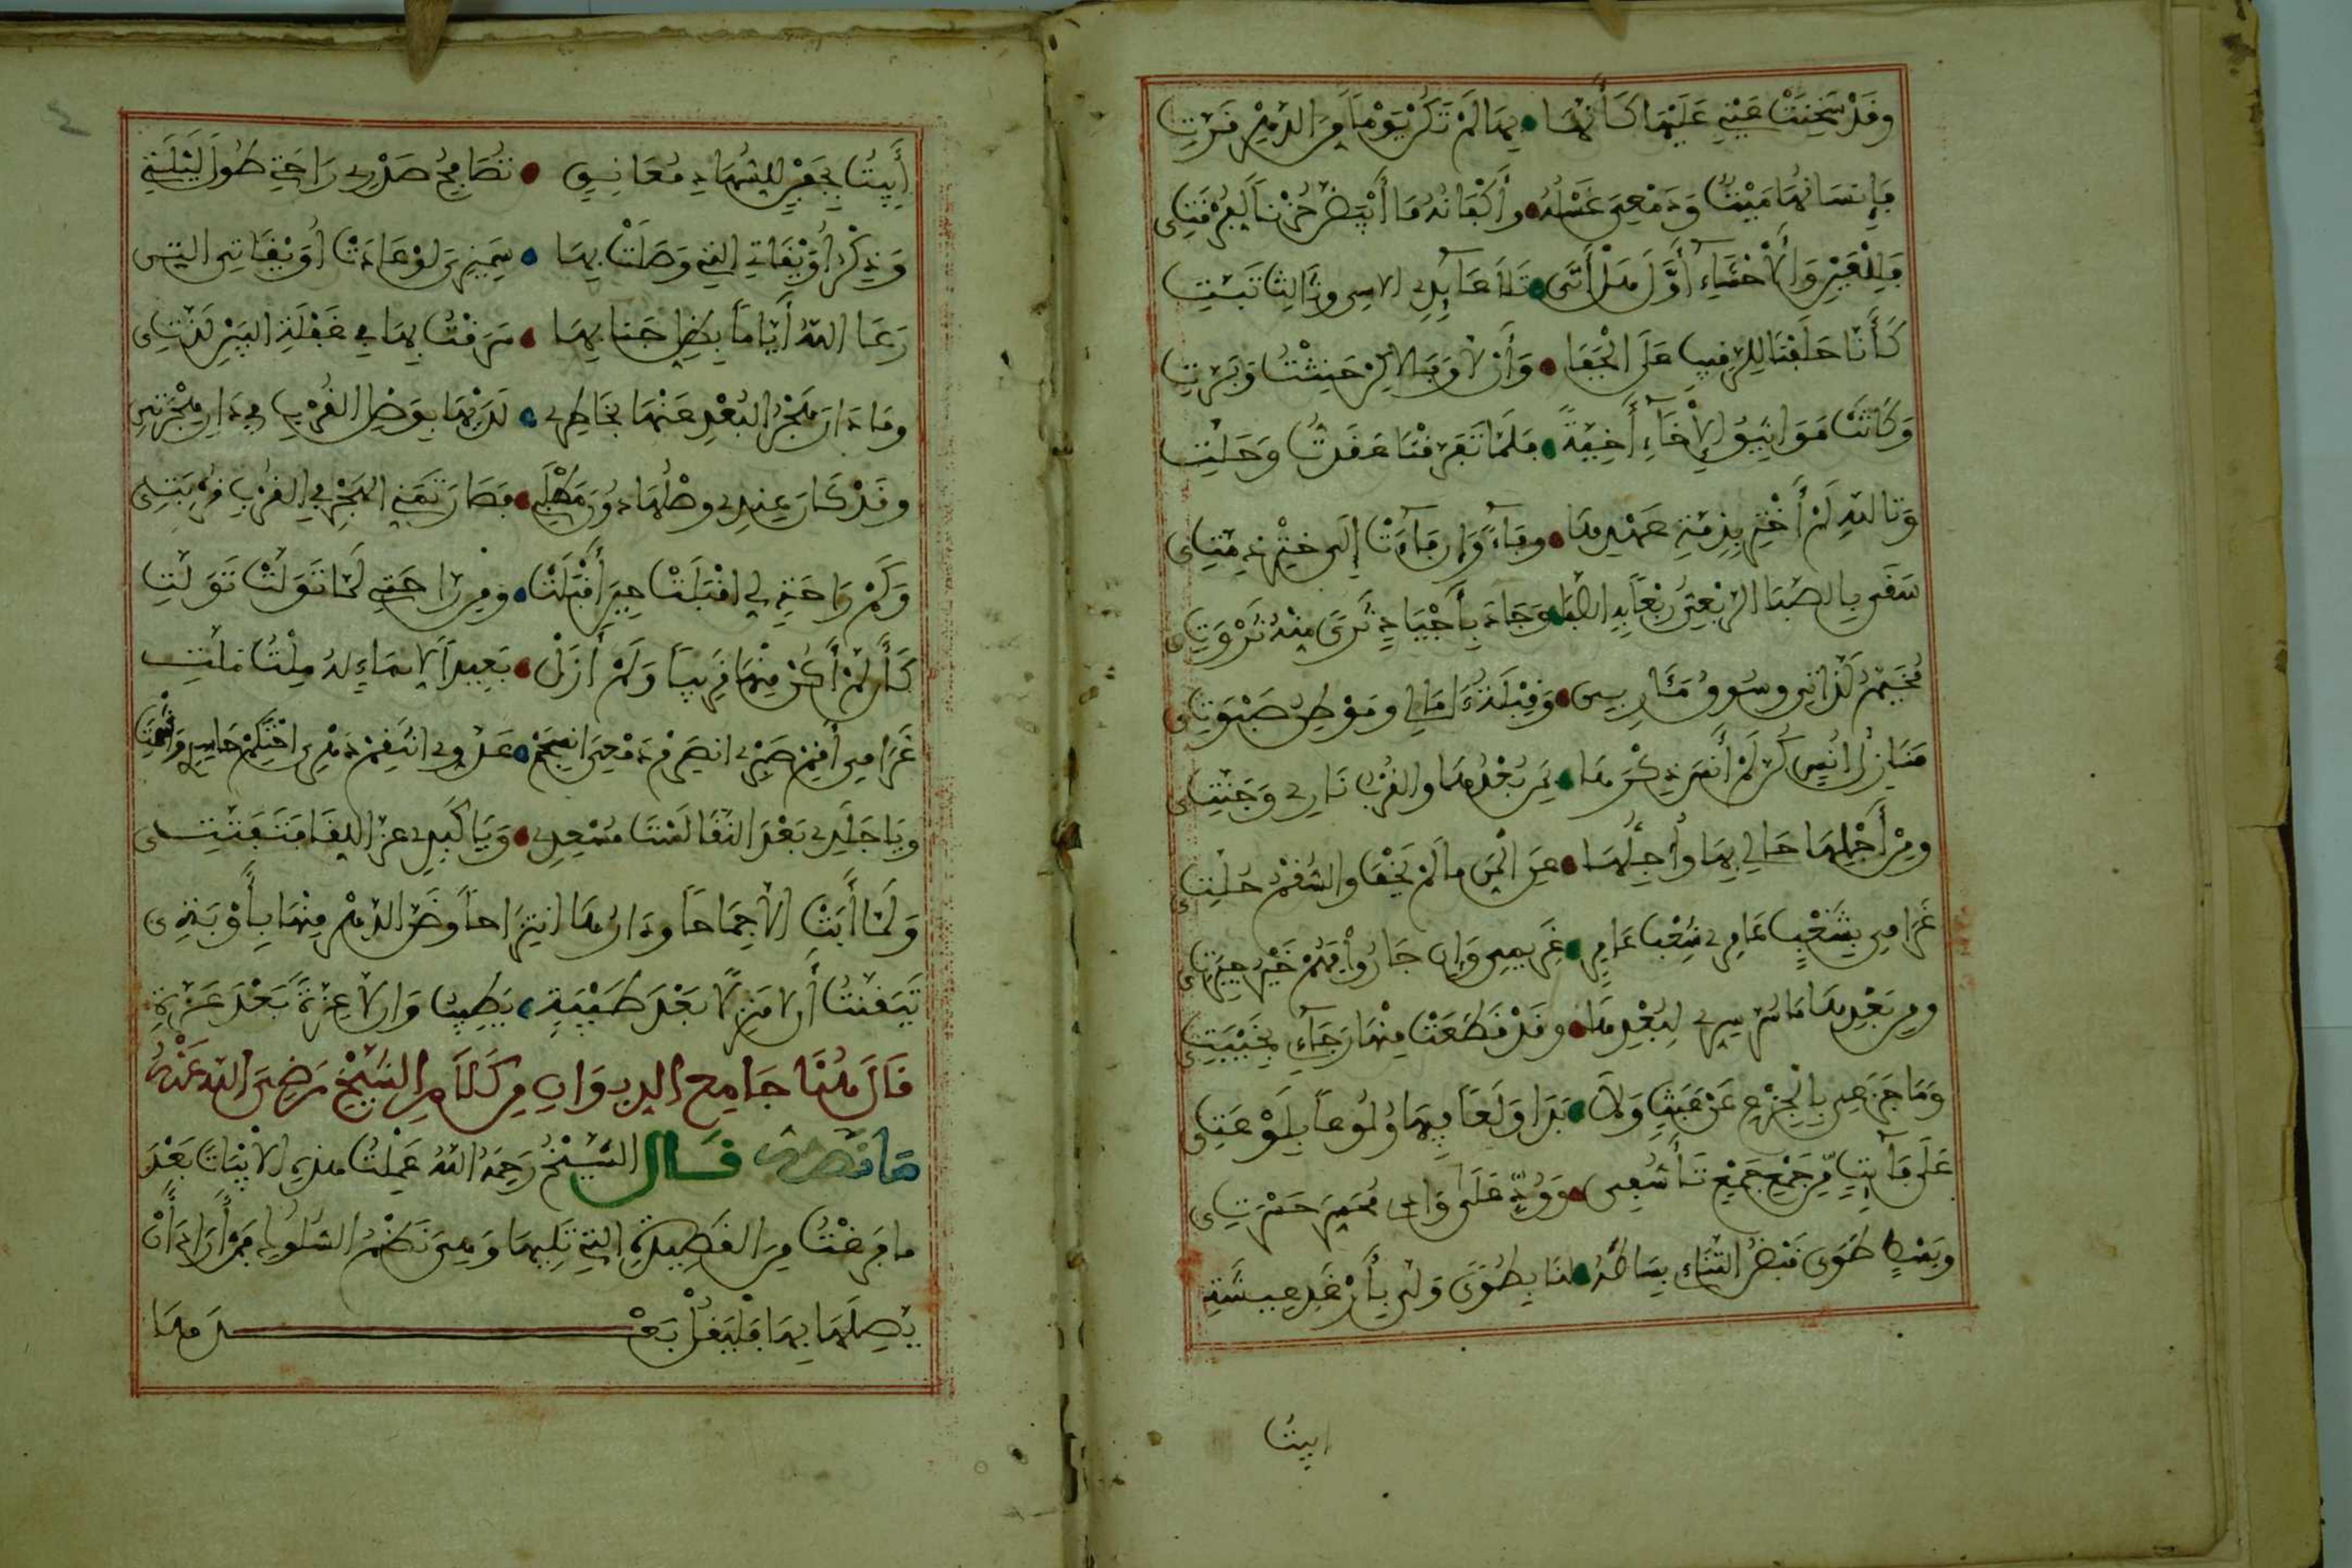 وقد سخنت عيني عليها كأنها • بها لم تكن يوما من الدهر قرت
فإنسانها ميت ودمعي غسله • وأكفانه ما ابيض حزنا لفرقتي
فللعين والأحشاء أول هل أتى • تلا عايدي الاسي وثالث تبت
كأنا حلفنا للرقيب على الجفا • وأن لا وفا لاكن حنثت وبرت
وكانت مواثيق الإخاء أخية • فلما تفرقنا عقدت وحلت
وتالله لم أختر بذمة عهدها • وفاء وإن فاءت إلى ختر ذمتي
سقى بالصبا الربعي ربعا به الصبا • وجاد بأجياد ثرى منه ثروتي
مخيم لذاتي وسوق مئاربي • وقبلة ءامالي وموطن صبوتي
منازل انس كن لم أنس ذكرها • بمن بعدها والقرب ناري وجنتي
ومن أجلها حالي بها وأجلها • عن المن ما لم تخف والسقم حلتي
غرامي بشعب عامر شعب عامر • غريمي وإن جاروا فهم خير جيرتي
ومن بعدها ما سر سري لبعدها • وقد قطعت منها رجاءي بخيبتي
وما جزعي بالجزع عن عبث ولا • بدا ولعا فيها ولوعا بلوعتي
على فائت من جمع جمع تأسفي • وود على وادى محسر حسرتي
وبسط طوى قبض التناء بساطه • لنا بطوى ولى بأرغد عيشة
ابيت
أبيت بجفن للسهاد معانق • تصافح صدري راحتي طول ليلتي
وذكر أويقاتي التي وصلت بها • سميري لو عادت أويقاتي التي
رعا الله أياما بظل جنابها • سرقت بها في غفلة البين لذتي
وما دار هجر البعد عنها بخاطري • لديها بوصل القرب في دار هجرتي
وقد كان عندي وصلها دون مطلبي • فصار تمني الهجر في القرب قربتي
وكم راحة لي اقبلت حين أقبلت • ومن راحتي لما تولت تولت
كأن لم أكن منها قريبا ولم أزل • بعيدا لاي ماله ملت ملت
غرامي أقم صبري انصرم دمعي انسجم • عدوي انتقم دهري احتكم حاسدي اشمت
ويا جلدي بعد النقا لست مسعدي • ويا كبدي عز اللقا فتفتتي
ولما أبت الا جماحا ودارها انتزاحا وضن الدهر منها بأوبة
تيقنت أن لا منزلا بعد طيبة • يطيب وان لا عزة بعد عزة
قال هنا جامع الديوان من كلام الشيخ رضي الله عنه
ما نصه قال الشيخ رحمه الله عملت هذه الأبيات بعد
ما فرغت من القصيدة التي تليها وهي نظم السلوك فمن أراد أن
يصلها بها فليقل بعد هذا